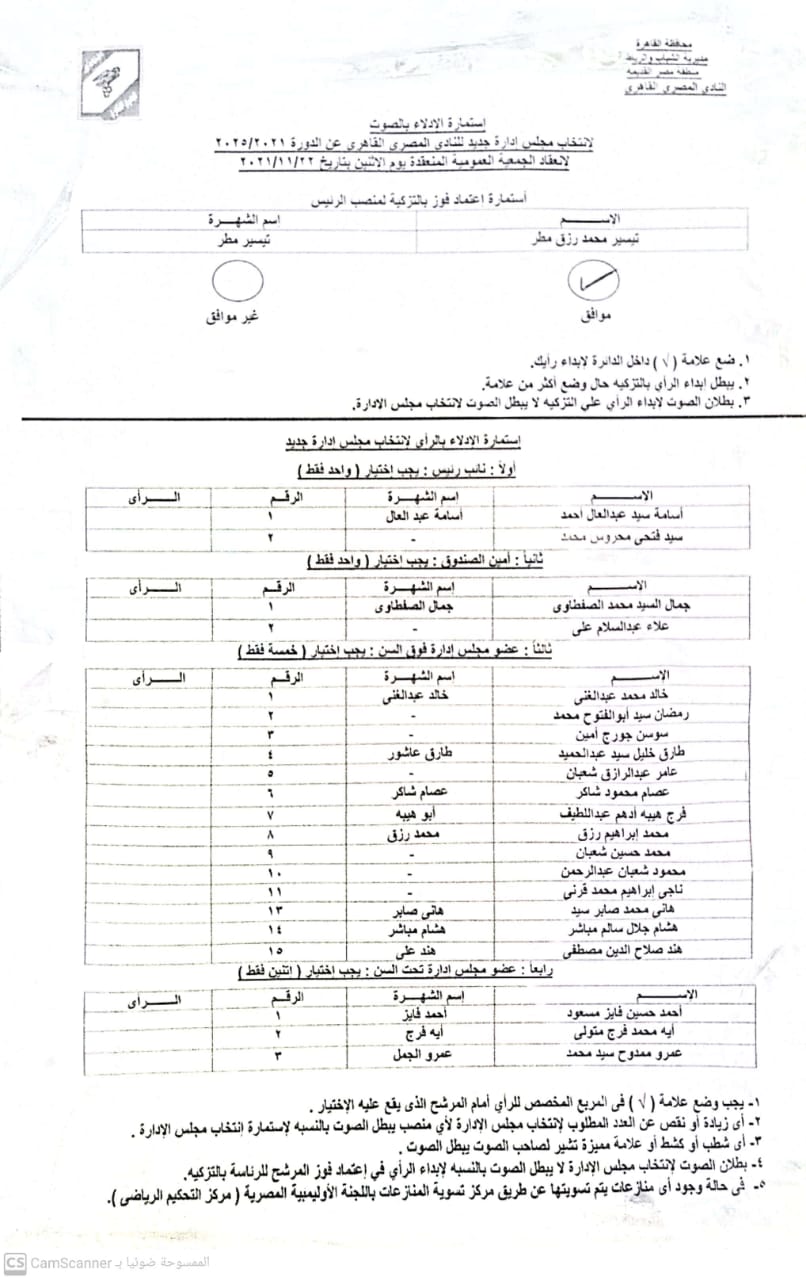 محافظة القاهرة
مديرية الشباب والرياضة
منطقة مصر القديمة
النادى المصرى القاهرى
استمارة الإدلاء بالصوت
لانتخاب مجلس ادارة جديد للنادى المصرى القاهرى عن الدورة ٢٠٢٥/٢٠٢١
لانعقاد الجمعية العمومية المنعقدة يوم الاثنين بتاريخ ٢٠٢١/١١/٢٢
أستمارة اعتماد فوز بالتزكية لمنصب الرئيس
الاســـــم اسم الشهـرة
تيسير محمد رزق مطر تيسير مطر
موافق غير موافق
١. ضع علامة (√) داخل الدائرة لابداء رأيك.
٢. يبطل ابداء الرأي بالتزكيه حال وضع أكثر من علامة.
٣. بطلان الصوت لابداء الرأي علي التزكيه لا يبطل الصوت لانتخاب مجلس الادارة.
إستمارة الإدلاء بالرأى لإنتخاب مجلس إدارة جديد
أولاً : نائب رئيس : يجب إختيار ( واحد فقط )
الاســـــم إسم الشهـــرة الرقـم الـــرأى
أسامة سيد عبدالعال أحمد أسامة عبد العال ١
سيد فتحى محروس محمد - ٢
ثانياً : أمين الصندوق : يجب اختيار ( واحد فقط )
الاســـــم إسم الشهـــرة الرقـم الـــرأى
جمال السيد محمد الصفطاوى جمال الصفطاوى ١
علاء عبدالسلام على - ٢
ثالثاً : عضو مجلس إدارة فوق السن : يجب إختيار ( خمسة فقط )
الاســـــم إسم الشهـــرة الرقـم الـــرأى
خالد محمد عبدالغنى خالد عبدالغنى ١
رمضان سيد أبوالفتوح محمد - ٢
سوسن جورج أمين - ٣
طارق خليل سيد عبدالحميد طارق عاشور ٤
عامر عبدالرازق شعبان - ٥
عصام محمود شاكر عصام شاكر ٦
فرج هيبه أدهم عبداللطيف أبو هيبه ٧
محمد إبراهيم رزق محمد رزق ٨
محمد حسين شعبان - ٩
محمود شعبان عبدالرحمن - ١٠
ناجى إبراهيم محمد قرنى - ١١
هانى محمد صابر سيد هانى صابر ١٣
هشام جلال سالم مباشر هشام مباشر ١٤
هند صلاح الدين مصطفى هند على ١٥
رابعاً : عضو مجلس إدارة تحت السن : يجب إختيار ( إثنين فقط )
الاســـــم إسم الشهـــرة الرقـم الـــرأى
أحمد حسين فايز مسعود أحمد فايز ١
أيه محمد فرج متولى أيه فرج ٢
عمرو ممدوح سيد محمد عمرو الجمل ٣
١- يجب وضع علامة ( √ ) فى المربع المخصص للرأي أمام المرشح الذى يقع عليه الإختيار .
٢- أى زيادة أو نقص عن العدد المطلوب لإنتخاب مجلس الإدارة لأي منصب يبطل الصوت بالنسبه لإستمارة إنتخاب مجلس الإدارة .
٣- أى شطب أو كشط أو علامة مميزة تشير لصاحب الصوت يبطل الصوت .
٤- بطلان الصوت لإنتخاب مجلس الإدارة لا يبطل الصوت بالنسبه لإبداء الرأي في إعتماد فوز المرشح للرئاسة بالتزكيه.
٥- فى حالة وجود أى منازعات يتم تسويتها عن طريق مركز تسوية المنازعات باللجنة الأوليمبية المصرية ( مركز التحكيم الرياضى ).
CS CamScanner الممسوحة ضوئيا بـ